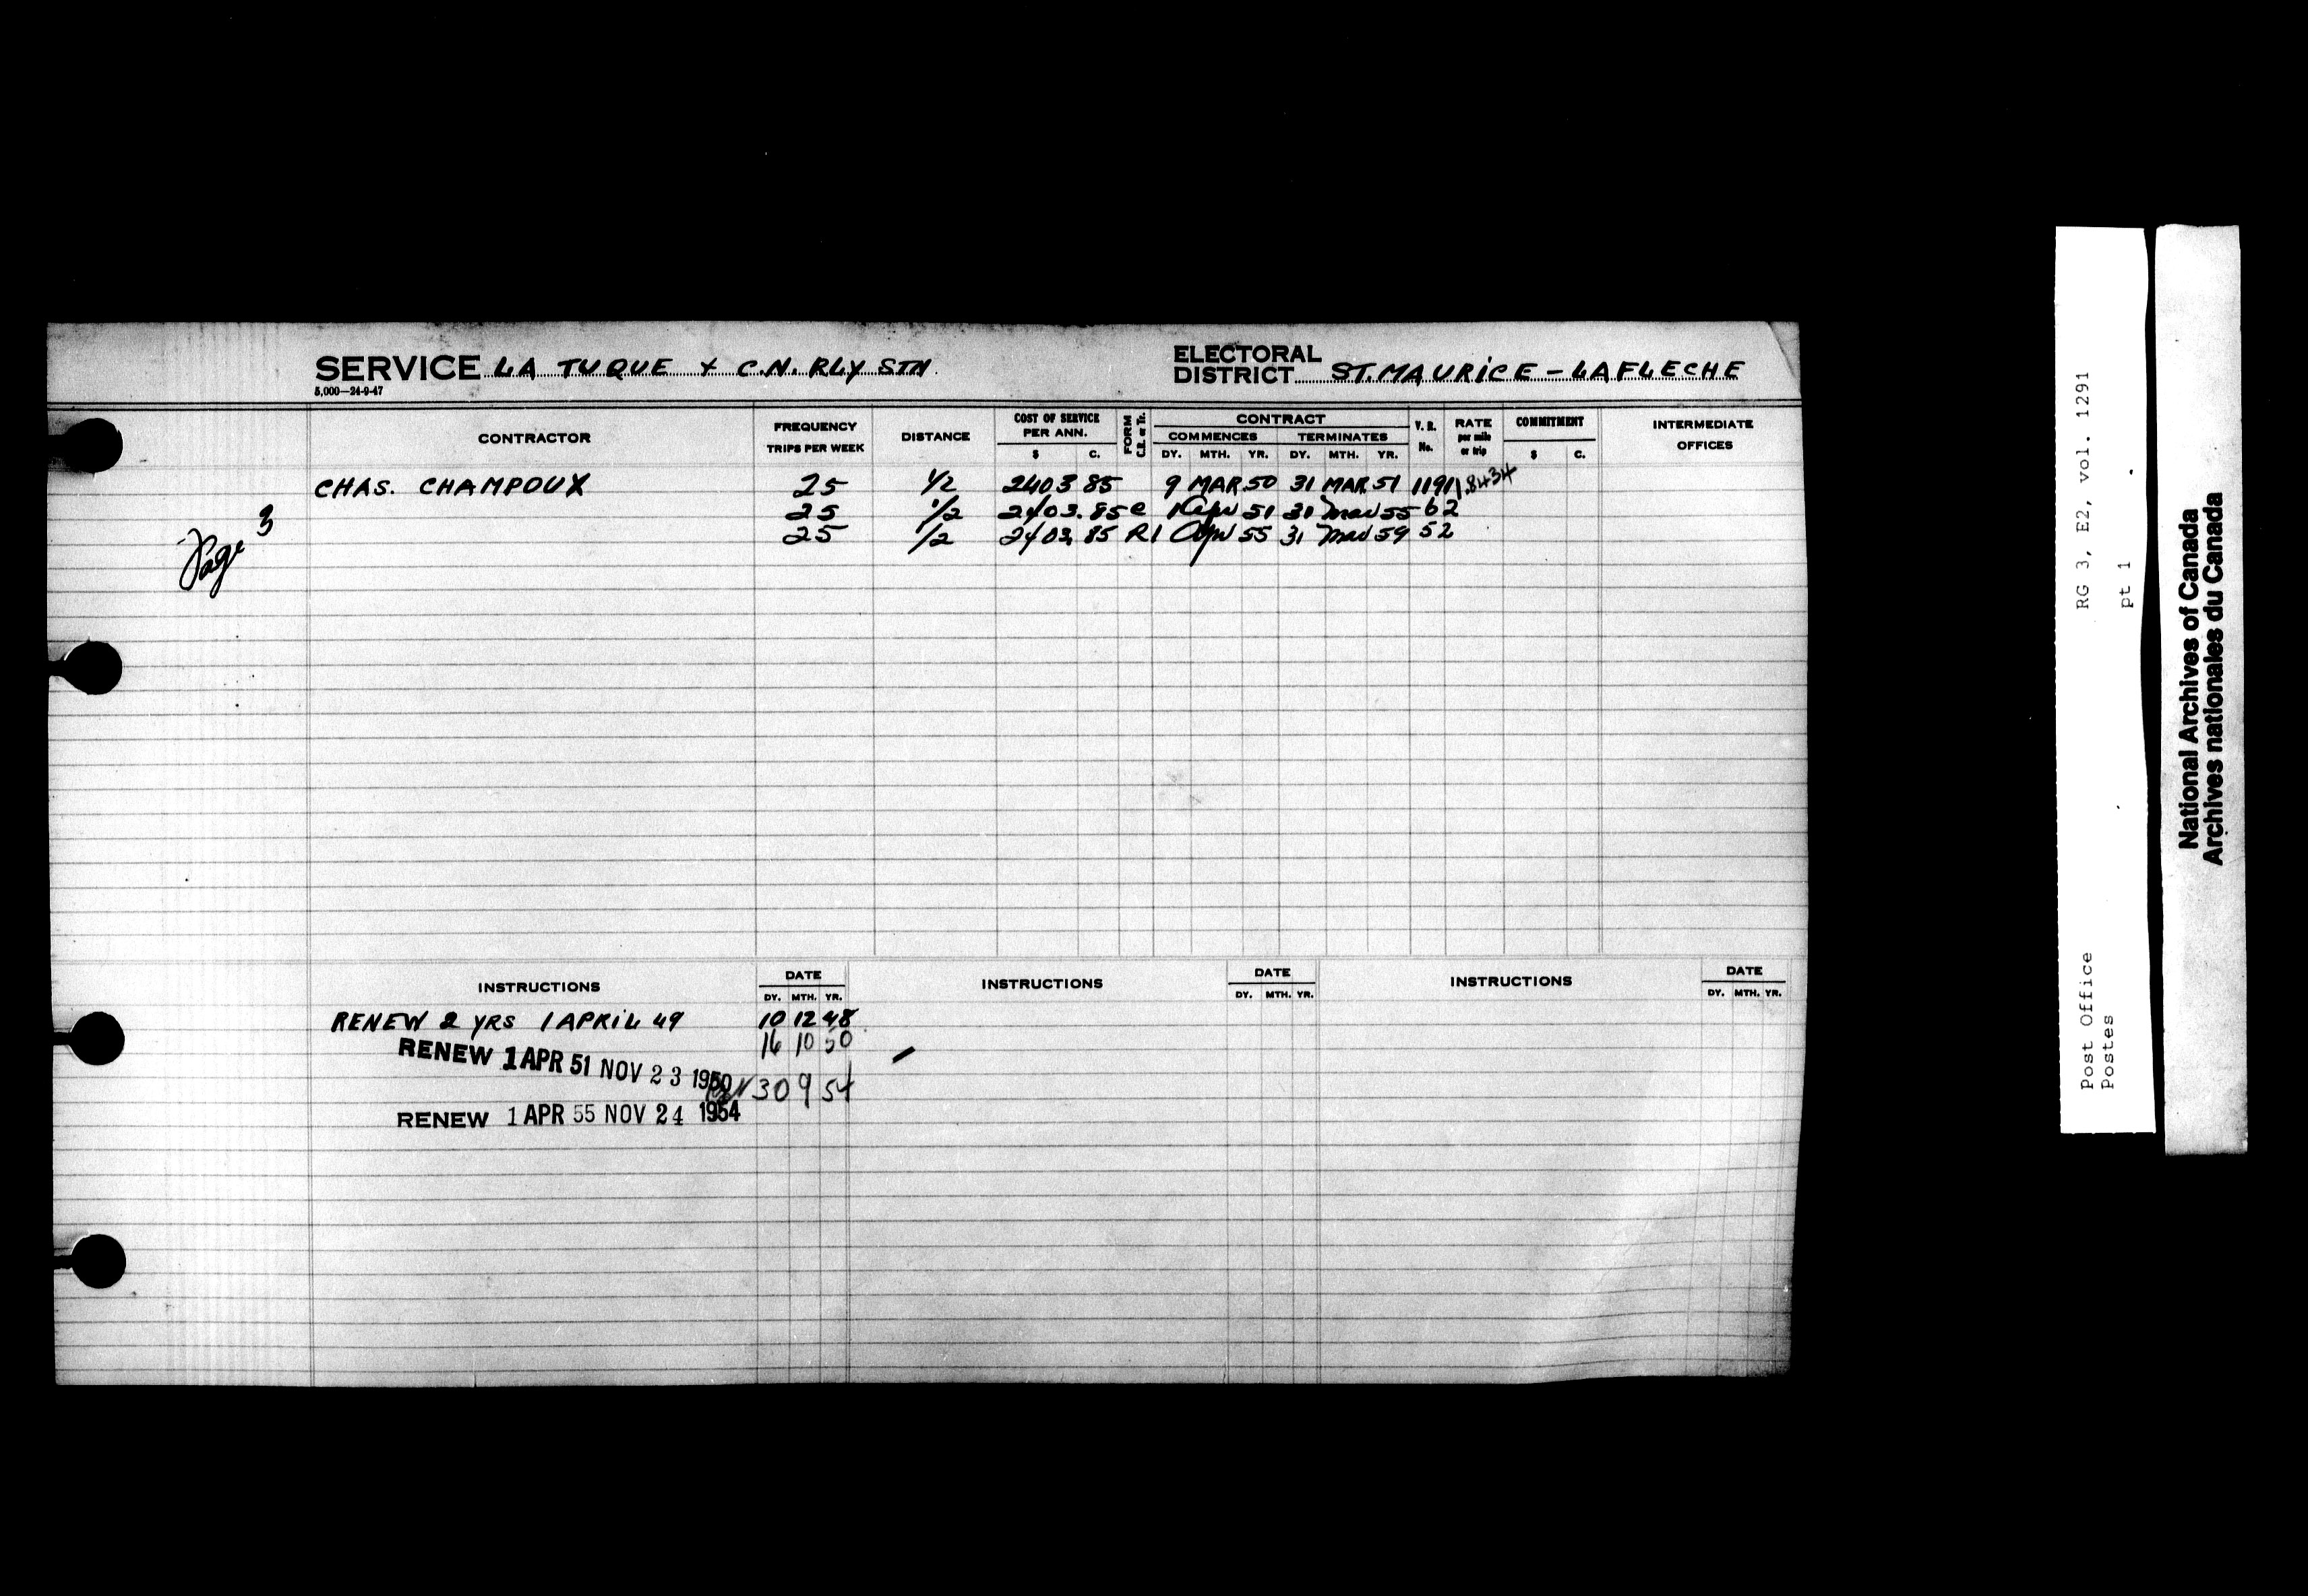 SERVICE LA TUQUE & C.N. RLY STN
5,000—24-9-47
ELECTORAL DISTRICT ST. MAURICE - LAFLECHE
CONTRACTOR FREQUENCY TRIPS PER WEEK DISTANCE COST OF SERVICE PER ANN. $ C. FORM C.R. or Tr. CONTRACT COMMENCES DY. MTH. YR. TERMINATES DY. MTH. YR. V. R. No. RATE per mile or trip COMMITMENT $ C. INTERMEDIATE OFFICES
CHAS. CHAMPOUX 25 1/2 2403 85 9 MAR. 50 31 MAR. 51 1191 1.8434
25 1/2 2403. 85 C 1 Apr 51 31 Mar 55 62
25 1/2 2403. 85 R 1 Apr 55 31 Mar 59 52
Page 3
INSTRUCTIONS DATE DY. MTH. YR. INSTRUCTIONS DATE DY. MTH. YR. INSTRUCTIONS DATE DY. MTH. YR.
RENEW 2 YRS 1 APRIL 49 10 12 48
16 10 50
RENEW 1 APR 51 NOV 23 1950
30 9 54
RENEW 1 APR 55 NOV 24 1954
Post Office RG 3, E2, vol. 1291
Postes pt 1
National Archives of Canada
Archives nationales du Canada